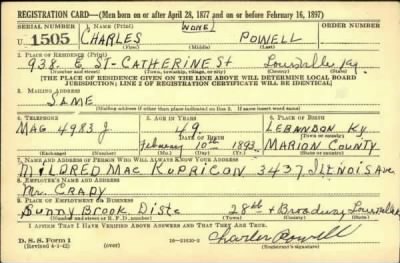 REGISTRATION CARD—(Men born on or after April 28, 1877 and on or before February 16, 1897)
SERIAL NUMBER 1. NAME (Print) (NONE) ORDER NUMBER
U 1505 CHARLES POWELL
(First) (Middle) (Last)
2. PLACE OF RESIDENCE (Print)
938. E ST-CATHERINE St Louisville Ky
(Number and street) (Town, township, village, or city) (County) (State)
[THE PLACE OF RESIDENCE GIVEN ON THE LINE ABOVE WILL DETERMINE LOCAL BOARD
JURISDICTION; LINE 2 OF REGISTRATION CERTIFICATE WILL BE IDENTICAL]
3. MAILING ADDRESS
SAME
[Mailing address if other than place indicated on line 2. If same insert word same]
4. TELEPHONE 5. AGE IN YEARS 6. PLACE OF BIRTH
MAG 4983 J 49 LEBANDON KY
DATE OF BIRTH (Town or county)
February 10th 1893 MARION COUNTY
(Exchange) (Number) (Mo.) (Day) (Yr.) (State or country)
7. NAME AND ADDRESS OF PERSON WHO WILL ALWAYS KNOW YOUR ADDRESS
MILDRED MAC KUPRICON 3437 ILLINOIS AVE
8. EMPLOYER'S NAME AND ADDRESS
Mr. GRADY
9. PLACE OF EMPLOYMENT OR BUSINESS
Bunny Brook Dist. 28th + Broadway Louisville
(Number and street or R. F. D. number) (Town) (County) (State)
I AFFIRM THAT I HAVE VERIFIED ABOVE ANSWERS AND THAT THEY ARE TRUE.
D. S. S. Form 1
(Revised 4-1-42) (over) 16—21630-2 Charles Powell
(Registrant's signature)